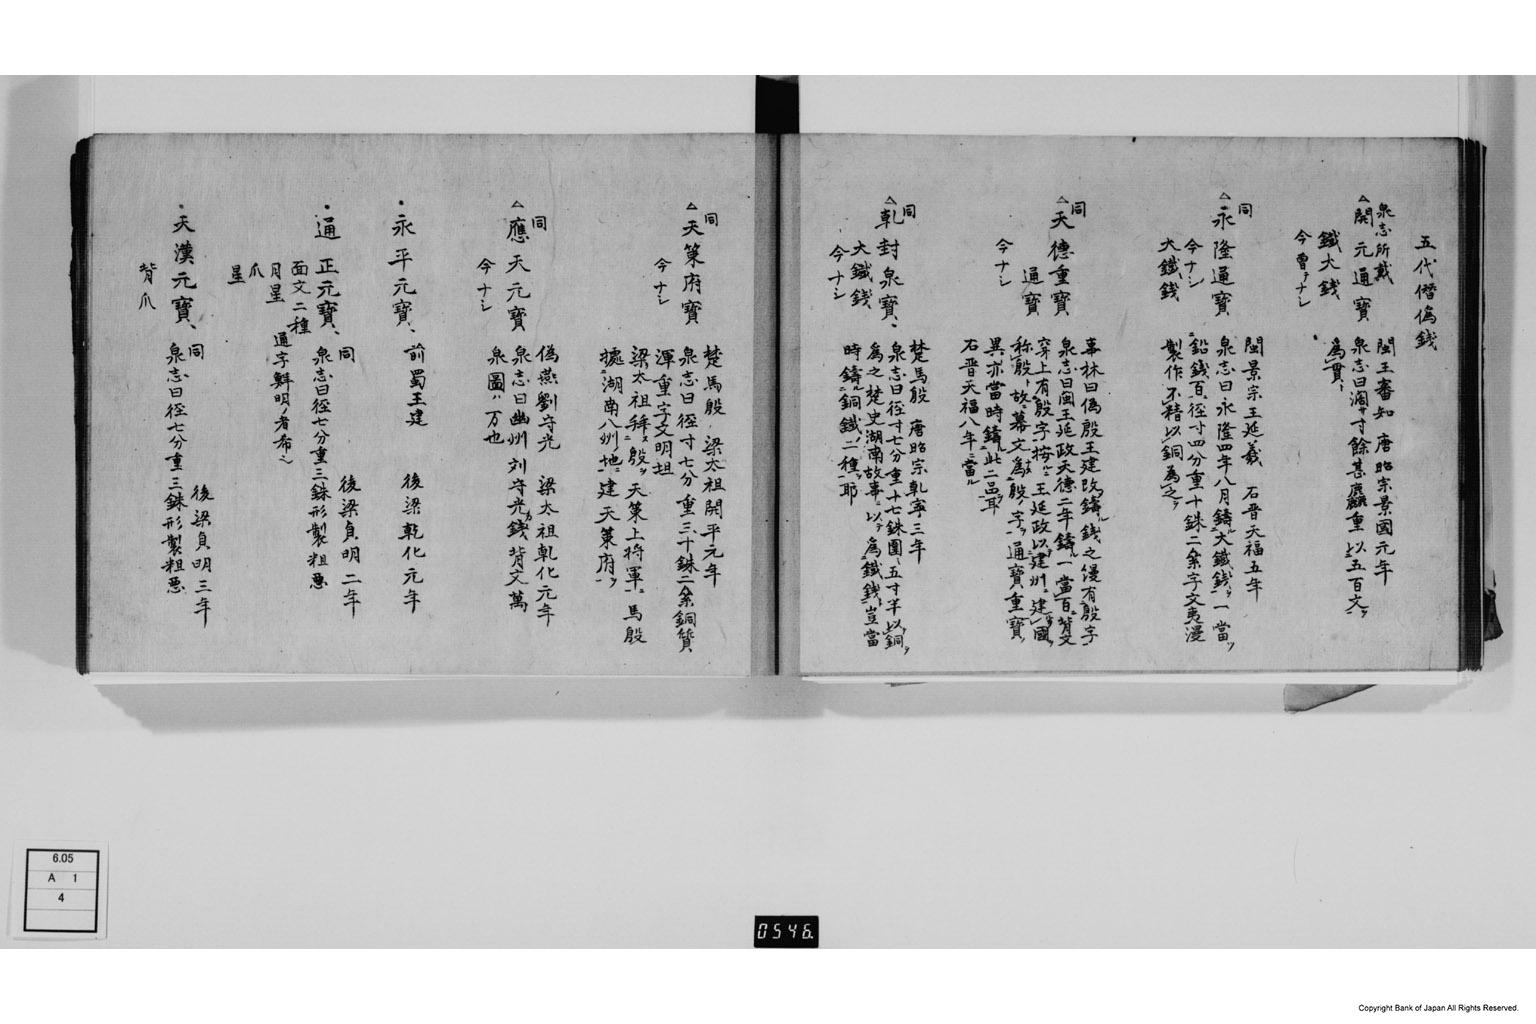 五代僭偽銭
泉志所載
△開元通寳
鐵大銭
今曽テナシ
閩王審知 唐昭宗景國元年
泉志曰濶サ寸餘甚麤重以五百文ヲ
為貫ト
同
△永隆通寳
今ナシ
大鐵銭
閩景宗王延羲 石晋天福五年
泉志曰永隆四年八月鑄ル大鐵銭ヲ一當ツ
ニ鉛銭百ニ径寸四分重十銖二絫字文夷漫
製作不精以銅為之ヲ
同
△天德重寳
通寳
今ナシ
事林曰偽殷王建改鑄ル銭之僈有殷字
泉志曰閩王延政天德二年鑄ル一當百ニ背文
穿上有殷字按ルニ王延政以建州ヲ建國ヲ
称殷ト故ニ幕文為殷字ヲ通寳重寳ヲ
異亦當時鑄ル此二品ヲ耳
石晋天福八年ニ當ル
同
△乾封泉寳、
大鐵銭
今ナシ
楚馬殷 唐昭宗乾寧三年
泉志曰径寸七分重十七銖圍五寸半以銅ヲ
為之ヲ楚史湖南故事ニ以テ為鐵銭ト豈當
時鑄ル銅鐵ノ二種ヲ耶
同
△天策府寳
今ナシ
楚馬殷 梁太祖開平元年
泉志曰径寸七分重三十銖二絫銅質
渾重字文明坦
梁太祖拜ス殷ヲ天策上將軍ニ馬殷
據ニ湖南八州ノ地ニ建天策府ヲ
同
△應天元寳
今ナシ
偽燕劉守光 梁太祖乾化元年
泉志曰幽州刘守光カ銭背文萬
泉圖ハ万也
・永平元寳、前蜀王建 後梁乾化元年
・通正元寳、同 後梁貞明二年
面文二種
月星
爪
星
泉志曰径七分重三銖形製粗悪
通字鮮明ノ者希之
・天漢元寳、同 後梁貞明三年
背爪
泉志曰径七分重三銖形製粗悪
6.05
A 1
4
0546.
Copyright Bank of Japan All Rights Reserved.